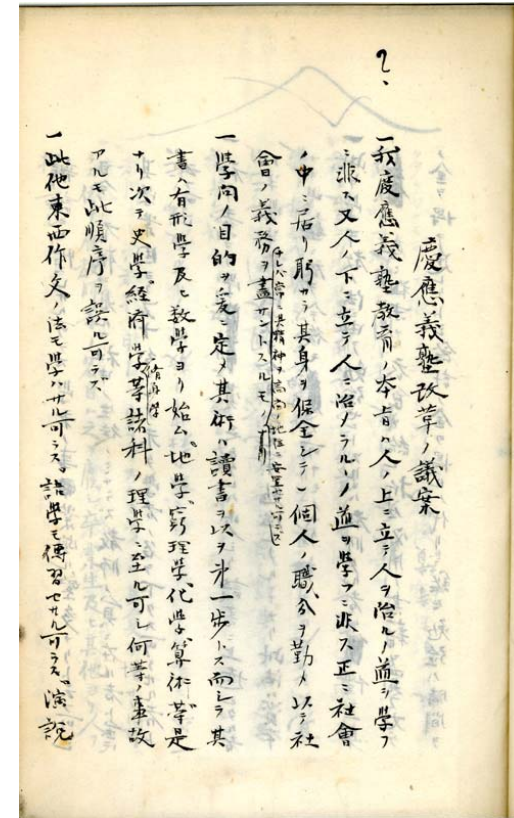 慶應義塾改革ノ議案
一我慶應義塾教育ノ本旨ハ人ノ上ニ立テ人ヲ治ルノ道ヲ學フ
ニ非ス又人ノ下ニ立テ人ニ治メラルヽノ道ヲ學フニ非ス正ニ社會
ノ中ニ居リ躬カラ其身ヲ保全シテ一個人ノ職分ヲ勤メ以テ社
會ノ義務ヲ盡サントスルモノナリ
サレハ常ニ其精神ヲ高尚ノ地位ニ安置セサル可ラズ
一學問ノ目的ヲ爰ニ定メ其術ハ讀書ヲ以テ第一歩トス而シテ其
書ハ有形學及ヒ數學ヨリ始ム地學、窮理學、化學、算術等是
ナリ次テ史學、經濟學、脩身學等諸科ノ理學ニ至ル可シ何等ノ事故
アルモ此順序ヲ誤ル可ラズ
一此他東西作文ノ法モ學ハサル可ラズ、語學モ傳習セサル可ラズ、演説